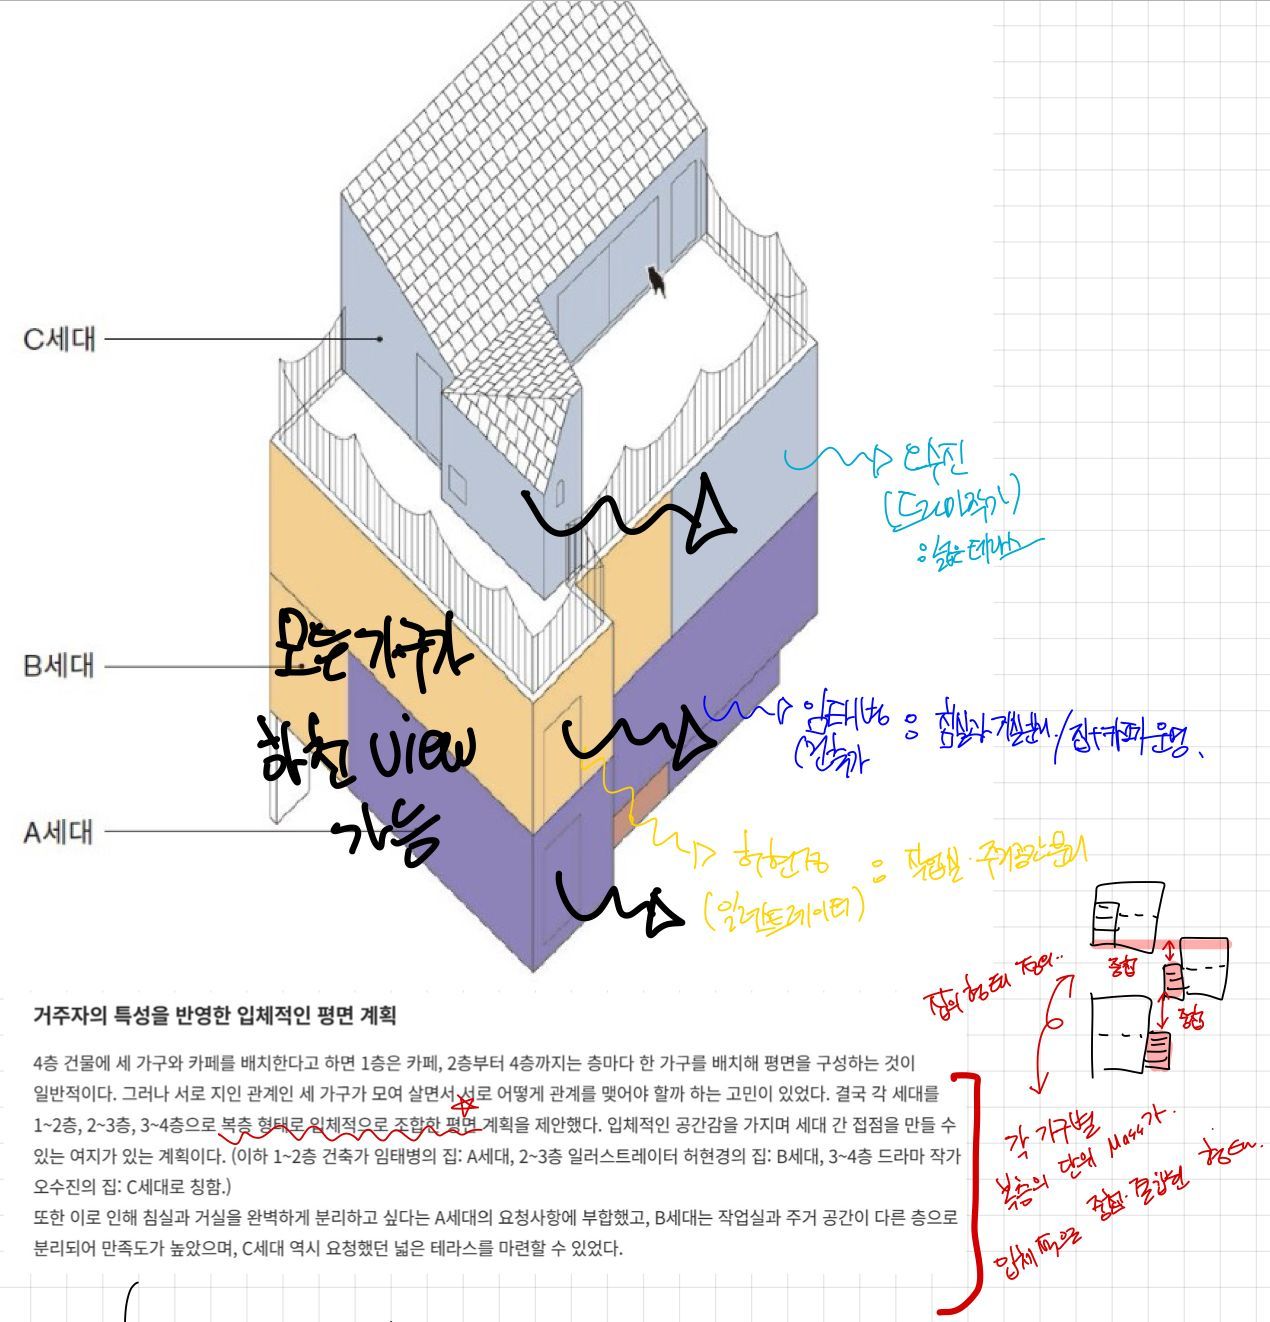 C세대
오수진
(드라마작가)
: 넓은테라스
모든가구가
B세대
임태병 : 침실과 거실분리 / 집+카페운영.
(건축가
하천 view
가능
A세대
허현경 : 작업실·주거공간분리
(일러스트레이터)
중첩
집의 형태 정의..
중첩
거주자의 특성을 반영한 입체적인 평면 계획
4층 건물에 세 가구와 카페를 배치한다고 하면 1층은 카페, 2층부터 4층까지는 층마다 한 가구를 배치해 평면을 구성하는 것이
일반적이다. 그러나 서로 지인 관계인 세 가구가 모여 살면서 서로 어떻게 관계를 맺어야 할까 하는 고민이 있었다. 결국 각 세대를
1~2층, 2~3층, 3~4층으로 복층 형태로 입체적으로 조합한 평면 계획을 제안했다. 입체적인 공간감을 가지며 세대 간 접점을 만들 수
있는 여지가 있는 계획이다. (이하 1~2층 건축가 임태병의 집: A세대, 2~3층 일러스트레이터 허현경의 집: B세대, 3~4층 드라마 작가
오수진의 집: C세대로 칭함.)
또한 이로 인해 침실과 거실을 완벽하게 분리하고 싶다는 A세대의 요청사항에 부합했고, B세대는 작업실과 주거 공간이 다른 층으로
분리되어 만족도가 높았으며, C세대 역시 요청했던 넓은 테라스를 마련할 수 있었다.
각 가구별
복층의 단위 Mass가.
입체적으로 중첩·결합된 형태.